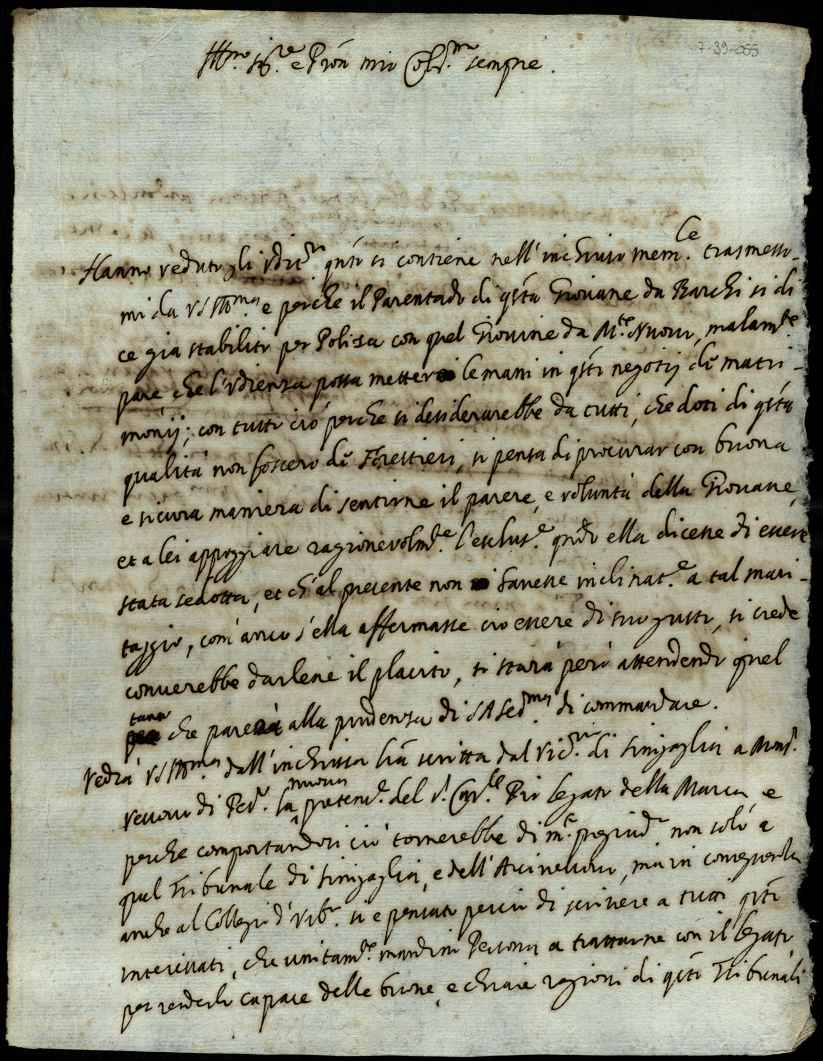 7-39-055
Ill.mo Sig.re e Pron mio Col.mo sempre.
Hanno veduto gli Udit.ri q.nto si contiene nell'inchiuso mem.le trasmesso-
mi da VS Ill.ma, e perche il Parentado di q.sta Giovane da Barchi si di
ce già stabilito per Polisa con quel Giovine da M.te Nuovo, malam.te
pare che l'Udienza possa metter le mani in q.sti negotij de matri-
monij; con tutto ciò perche si desiderarebbe da tutti, che doti di q.sta
qualità non fossero de Forestieri, si pensa di procurar con buona
e sicura maniera di sentirne il parere, e voluntà della Giovane,
et a lei appoggiare ragionevolm.te l'esclus.e q.ndo ella dicesse di essere
stata sedotta, et ch'al presente non havesse inclinat.e a tal mari-
taggio, com'anco s'ella affermasse ciò essere di suo gusto, si crede
converebbe darlene il placito, si starà però attendendo quel
tanto che parerà alla prudenza di SA Ser.ma di commandare.
Vedrà VS Ill.ma dall'inchiusa l'ra scritta dal Vic.rio di Sinigaglia a Mons.r
Vescovo di Pes.o la nuova pretens.e del S.r Car.le Pio legato della Marca, e
perche comportandosi ciò tornerebbe di m.to pregiud.o non solo a
quel Tribunale di Sinigaglia, e dell'Arcivescovo, ma in conseguenza
anche al Collegio d'Urb.o si è pensato perciò di scrivere a tutti q.sti
interessati, che unitam.te mandino Persona a trattarne con il legato
per renderlo capace delle buone, e chiare ragioni di q.sti Tribunali